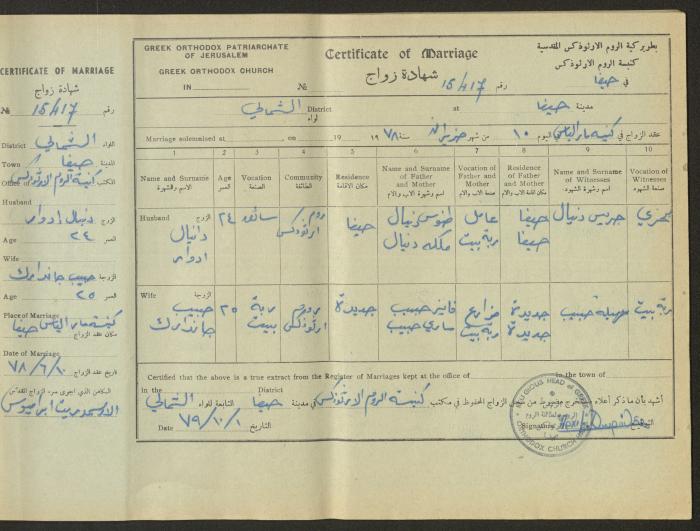 CERTIFICATE OF MARRIAGE
شهادة زواج
№ 15417 رقم
District الشمالي اللواء
Town حيفا المدينة
Office of كنيسة الروم الارثوذكس المكتب
Husband
دنيال ادوار الزوج
Age ٢٤ العمر
Wife
حبيب جاندارك الزوجة
Age ٢٥ العمر
Place of Marriage
كنيسة مار الياس حيفا مكان عقد الزواج
Date of Marriage
٧٨/٦/١٠ تاريخ عقد الزواج
GREEK ORTHODOX PATRIARCHATE
OF JERUSALEM
GREEK ORTHODOX CHURCH
IN
Certificate of Marriage
شهادة زواج
№ 15417 رقم
بطريركية الروم الارثوذكس المقدسية
كنيسة الروم الارثوذكس
في حيفا
الشمالي District لواء
at حيفا مدينة
Marriage solemnised at , on 19 ١٩٧٨ سنة حزيران من شهر ١٠ اليوم كنيسة مار الياس عقد الزواج في
1 2 3 4 5 6 7 8 9 10
Name and Surname الاسم والشهرة
Age العمر
Vocation الصنعة
Community الطائفة
Residence مكان الاقامة
Name and Surname of Father and Mother اسم وشهرة الاب والام
Vocation of Father and Mother صنعة الاب والام
Residence of Father and Mother مكان اقامة الاب والام
Name and Surname of Witnesses اسم وشهرة الشهود
Vocation of Witnesses صنعة الشهود
Husband الزوج
دانيال ادوار
٢٤
سائق
روم ارثوذكس
حيفا
طنوس دنيال
ملكه دنيال
عامل
ربة بيت
حيفا
حيفا
جريس دنيال
Wife الزوجة
حبيب جاندارك
٢٥
ربة بيت
روم ارثوذكس
جديدة
فايز حبيب
حبيب
مزارع
ربة بيت
جديدة
جديدة
سهيلة حبيب
ربة بيت
Certified that the above is a true extract from the Register of Marriages kept at the office of in the town of
in the District
أشهد بأن ما ذكر أعلاه مستخرج مضبوط من سجل الزواج المحفوظ في مكتب كنيسة الروم الارثوذكس في مدينة حيفا التابعة للواء الشمالي
Date ٧٩/١٠/١ التاريخ
Signature التوقيع
RELIGIOUS HEAD of GREEK
ORTHODOX CHURCH